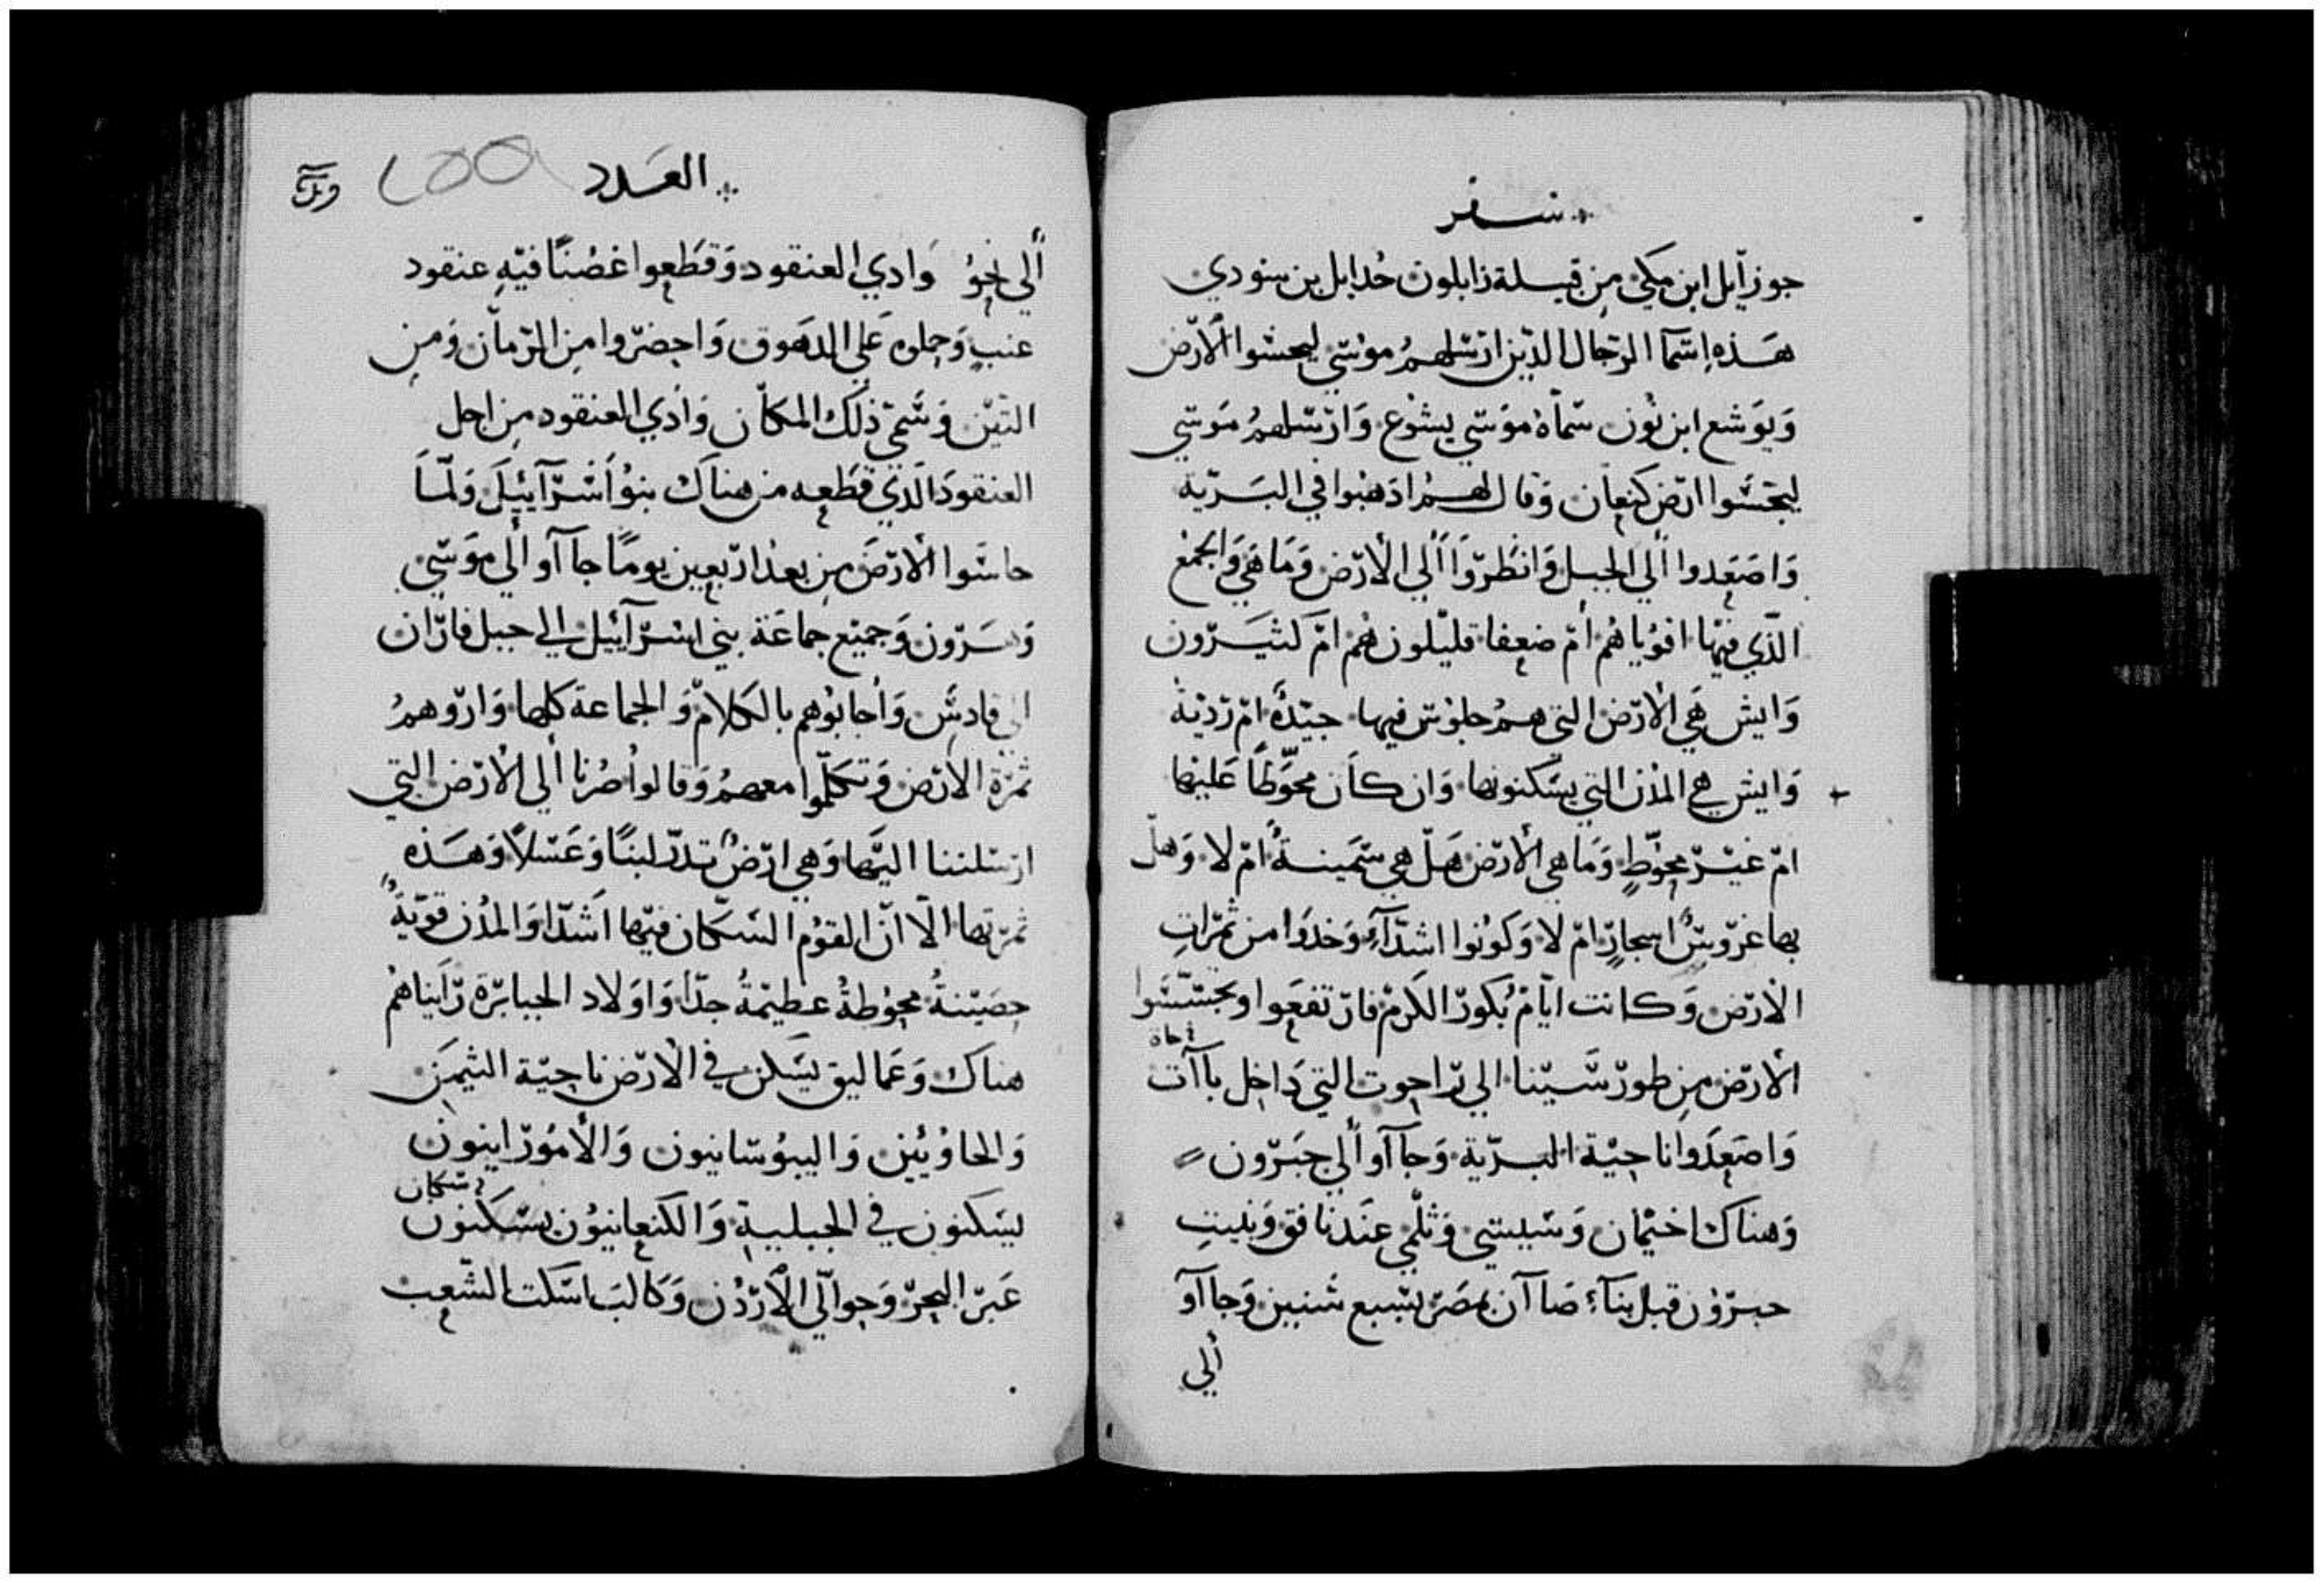 سفر
جوزآيل ابن مكي من قبيلة زابلون حُدايل بن سنودي
هَذه اسمآ الرّجال الدّين ارسلهمُ موُسَي ليجسُوا الأرض
وَيوَشع ابن نُون سمّاهُ موَسَي يشوُع وَارسلهمُ مَوسَي
ليجسَّوا ارض كنعان وَقال لهمُ ادهبُوا في البَرّية
وَاصَعِدوا ألي الجبل وَانظرّوَا ألي الأرض وَمَا هَي وَالجمُع
الّدي فيهَا اقوُيا هُم أمّ ضعفا قليّلون هُم امّ كثيَرون
وَايش هَي الأرض التي همُ جلوُس فيها جيّدةً امّ رَديَة
وَايش هي المُدُن التي يسَكنونها وَان كاَن محوّطًا عَليهَا
امّ غيرّ محوّطٍ وَمَا هي الأرّض هَلّ هي سّمَينةُ امّ لا وَهلّ
بها غرّوسٌ اسجارٍ امّ لا وَكوُنُوا اشدّآءِ وَخدوَا من ثمرَاتِ
الأرض وَكانت ايّامّ بُكورّ الكَرمّ فارّتفعَوا وتجسّسَوا
الأرّض مِن طورّ سّينا الي رّاحوت التي دَاخِل باآت
حاة
وَاصَعِدَوا ناحيّة البرّية وَجآآو ألي حبَرّون
وَهناك اخيمان وَسّيسي وَثلمي عنَدنا فق وَبنيتِ
حبرّوُن قبل بنآءِ صَاآن بمصَرّ بسّبع سَنين وَجاآو
ألي
العَدد
ألي نحوُ وَادي العنقود وَقطَعوا غصُنًا فيّهِ عنقود
عنبٍ وَحملوه عَلي الدهَوق وَاحضرّوا مِن الرّمآن وَمِن
التّيّن وَسَّمي ذلَك المكاّن وَادَي العنقود مِن اجل
العنقودَ الّدي قطَعه من هناَك بنوُ أسرّآئيَلَ وَلمّاَ
حاسَوا الأرّضَ مِن بعدُ ارّبعين يومًا جاآو ألي موَسَي
وَهَرّون وَجميَع جماعَة بني اسرّآئيل الي جبل فارّان
الي قادسَّ وَأجابوُهم بالكَلامّ وَالجماعة كلها وَارّوَهمُ
ثمرَة الأرّض وَتكلّموا معهمُ وَقالوا صُرنا ألي الأرّض التي
ارّسَلتنا اليّهَا وَهي ارّضُ تدرّ لبنًا وَعَسَلاً وَهَذه
ثمرّتها الّا انّ القوُم السَكّان فيّها اشَدّا وَالمُدُن قوّيةُ
حِصَينةُ محوُطةُ عظيمّةُ جدّا وَاوَلاد الجبابرّة رّايناهمُ
هناك وَعَماليق يسَكن في الأرّض ناحِيّة التيمَن
وَالحاوُيُين وَاليبوُسّانيون وَالأمُورّاينونَ
سكان
يسَكنون في الجبليةِ وَالكنعانيوُن يسَكنون
عَبرّ البحرّ وَحوالّي الأرّدُن وَكالبَ اسَكت الشّعب